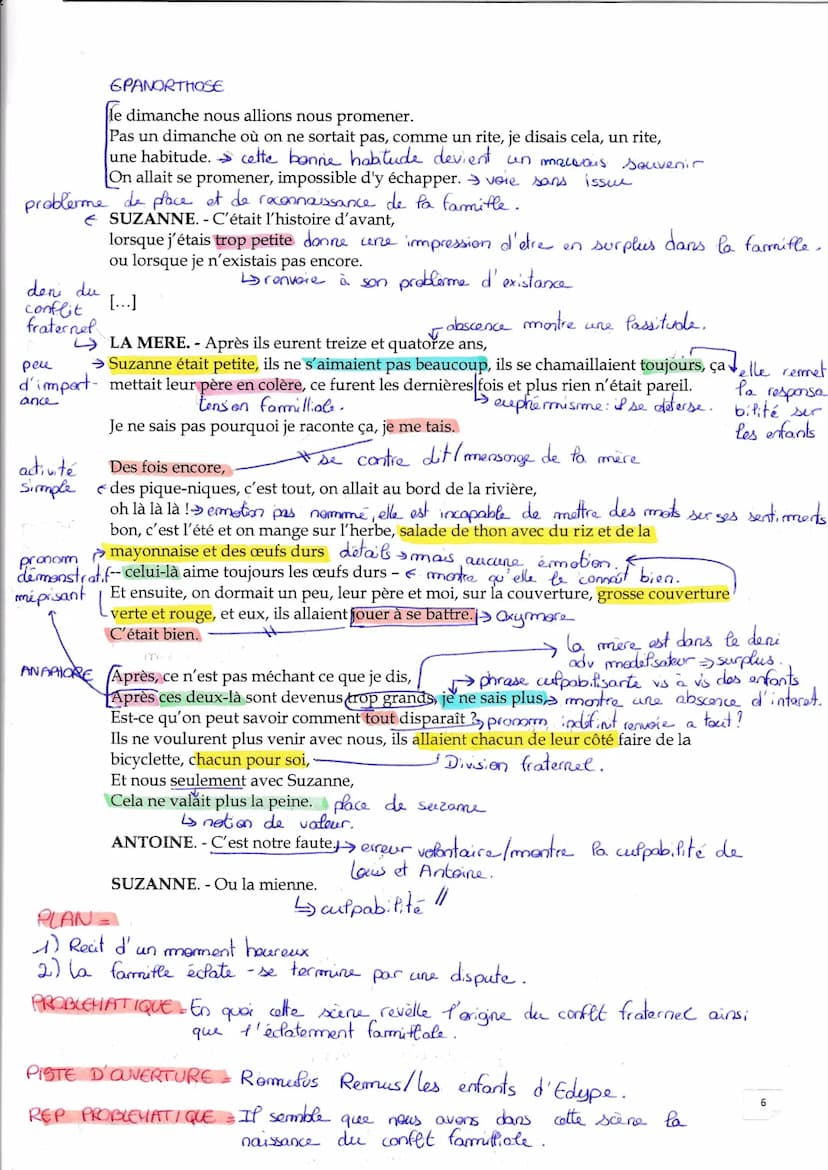 EPANORTHOSE
le dimanche nous allions nous promener.
Pas un dimanche où on ne sortait pas, comme un rite, je disais cela, un rite,
une habitude. → cette bonne habitude devient un mauvais souvenir
On allait se promener, impossible d'y échapper. → voie sans issue
problème de place et de reconnaissance de la famille.
SUZANNE. - C'était l'histoire d'avant,
lorsque j'étais trop petite donne une impression d'etre en surplus dans la famille.
ou lorsque je n'existais pas encore.
↳ renvoie à son problème d'existance
deni du
conflit
fraternel
[...]
abscence montre une lassitude.
LA MERE. - Après ils eurent treize et quatorze ans,
peu
d'import-
ance
Suzanne était petite, ils ne s'aimaient pas beaucoup, ils se chamaillaient toujours, ça
mettait leur père en colère, ce furent les dernières fois et plus rien n'était pareil.
elle remet
la responsa
bilité sur
les enfants
tension familliale.
↳ euphémisme: il se deterse.
Je ne sais pas pourquoi je raconte ça, je me tais.
se contre dit/mensonge de la mère
Des fois encore,
activité
simple
des pique-niques, c'est tout, on allait au bord de la rivière,
oh là là là ! → emotion pas nommé, elle est incapable de mettre des mots sur ses sentiments
bon, c'est l'été et on mange sur l'herbe, salade de thon avec du riz et de la
mayonnaise et des œufs durs détails → mais aucune émotion.
pronom
démonstratif
mépisant
-- celui-là aime toujours les œufs durs – ← montre qu'elle le connait bien.
Et ensuite, on dormait un peu, leur père et moi, sur la couverture, grosse couverture
verte et rouge, et eux, ils allaient jouer à se battre. → Oxymore
C'était bien.
la mère est dans le deni
adv modélisateur ⇒ surplus.
ANAPHORE
Après, ce n'est pas méchant ce que je dis,
→ phrase culpabilisante vs à vis des enfants
Après ces deux-là sont devenus trop grands, je ne sais plus, → montre une abscence d'interet.
Est-ce qu'on peut savoir comment tout disparaît ? → pronom indifint renvoie a tout ?
Ils ne voulurent plus venir avec nous, ils allaient chacun de leur côté faire de la
bicyclette, chacun pour soi, Division fraternel.
Et nous seulement avec Suzanne,
Cela ne valait plus la peine. place de suzanne
↳ notion de valeur.
ANTOINE. - C'est notre faute. → erreur volontaire/montre la culpabilité de
Louis et Antoine.
SUZANNE. - Ou la mienne.
↳ culpabilité //
PLAN =
1) Recit d'un moment heureux
2) la famille éclate - se termine par une dispute.
PROBLEMATIQUE = En quoi cette scène revèlle l'origine du conflt fraternel ainsi
que l'éclatement familliale.
PISTE D'OUVERTURE = Romulus Remus/les enfants d'Edype.
REP PROBLEMATIQUE = Il semble que nous avons dans cette scène la
naissance du conflt familliale.
6